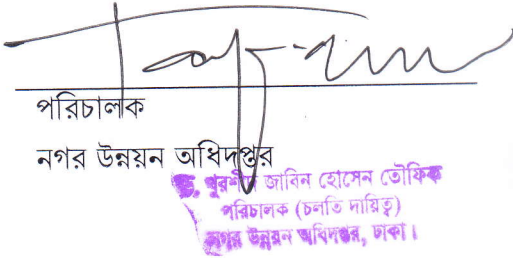 পরিচালক
নগর উন্নয়ন অধিদপ্তর
ড. খুরশীদ জাবিন হোসেন তৌফিক
পরিচালক (চলতি দায়িত্ব)
নগর উন্নয়ন অধিদপ্তর, ঢাকা।